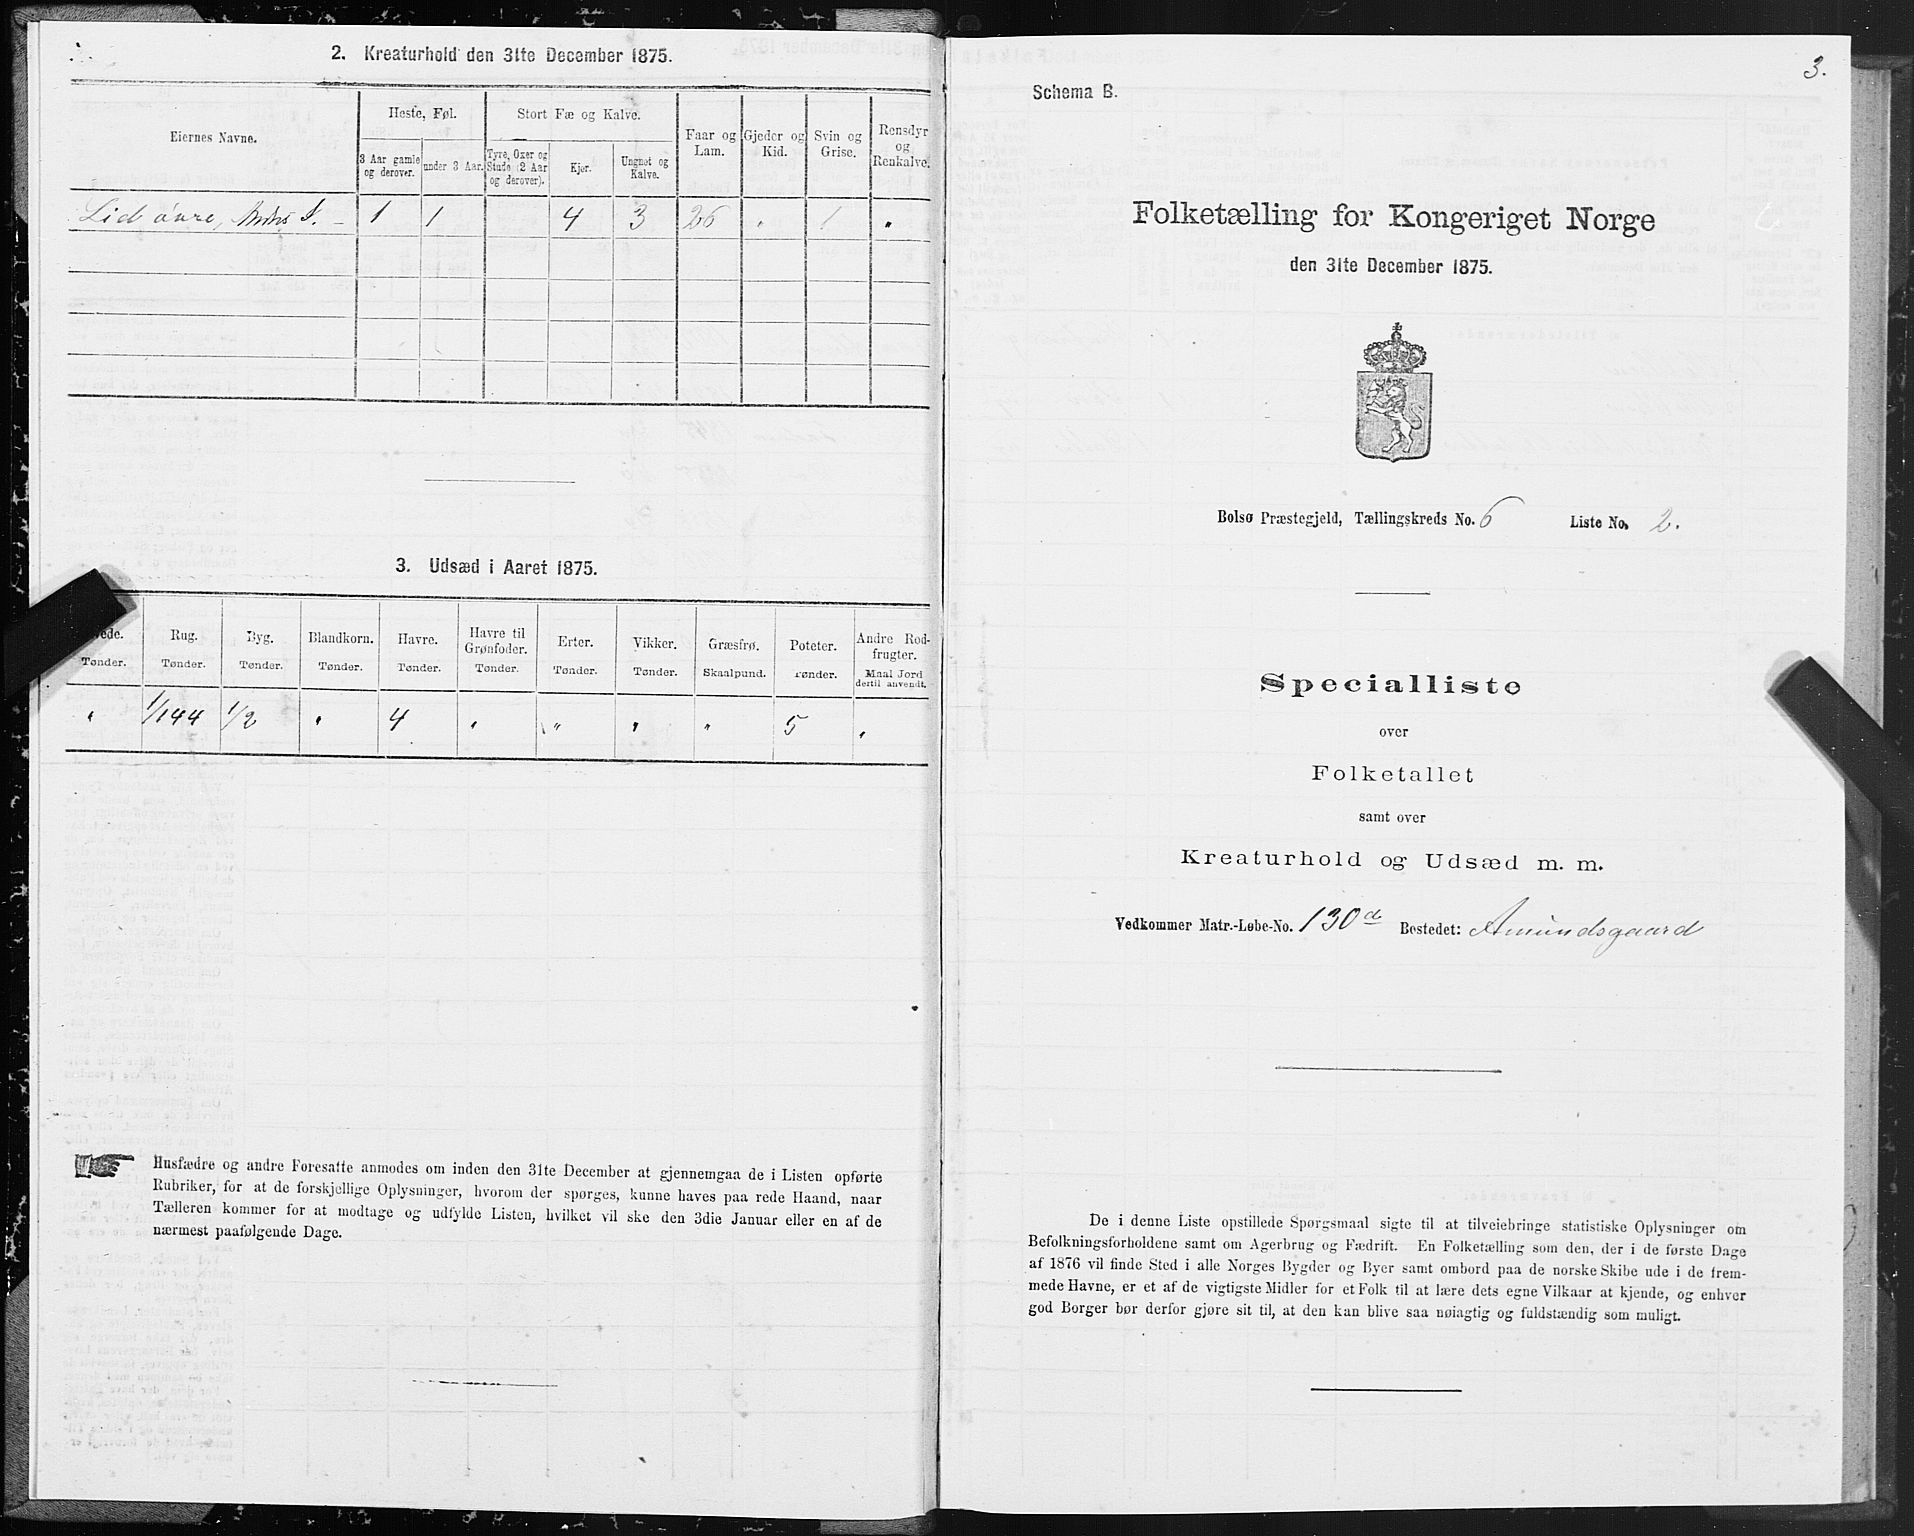 2. Kreaturhold den 31te December 1875.
Eiernes Navne.
Heste, Føl.
Stort Fæ og Kalve.
Faar og Lam.
Gjeder og Kid.
Svin og Grise.
Rensdyr og Renkalve.
3 Aar gamle og derover.
under 3 Aar.
Tyre, Oxer og Stude (2 Aar og derover).
Kjør.
Ungnøt og Kalve.
Lid øvre, Anders I. 1 1 4 3 26 " 1 "
3. Udsæd i Aaret 1875.
Hvede. Rug. Byg. Blandkorn. Havre. Havre til Grønfoder. Erter. Vikker. Græsfrø. Poteter. Andre Rodfrugter.
Tønder. Tønder. Tønder. Tønder. Tønder. Tønder. Tønder. Tønder. Skaalpund. Tønder. Maal Jord dertil anvendt.
" 1/144 1/2 " 4 " " " " 5 "
Husfædre og andre Foresatte anmodes om inden den 31te December at gjennemgaa de i Listen opførte
Rubriker, for at de forskjellige Oplysninger, hvorom der spørges, kunne haves paa rede Haand, naar
Tælleren kommer for at modtage og udfylde Listen, hvilket vil ske den 3die Januar eller en af de
nærmest paafølgende Dage.
3.
Schema B.
Folketælling for Kongeriget Norge
den 31te December 1875.
Bolsø Præstegjeld, Tællingskreds No. 6 Liste No. 2.
Specialliste
over
Folketallet
samt over
Kreaturhold og Udsæd m. m.
Vedkommer Matr.-Løbe-No. 130 d Bostedet: Amundsgaard
De i denne Liste opstillede Spørgsmaal sigte til at tilveiebringe statistiske Oplysninger om
Befolkningsforholdene samt om Agerbrug og Fædrift. En Folketælling som den, der i de første Dage
af 1876 vil finde Sted i alle Norges Bygder og Byer samt ombord paa de norske Skibe ude i de frem-
mede Havne, er et af de vigtigste Midler for et Folk til at lære dets egne Vilkaar at kjende, og enhver
god Borger bør derfor gjøre sit til, at den kan blive saa nøiagtig og fuldstændig som muligt.